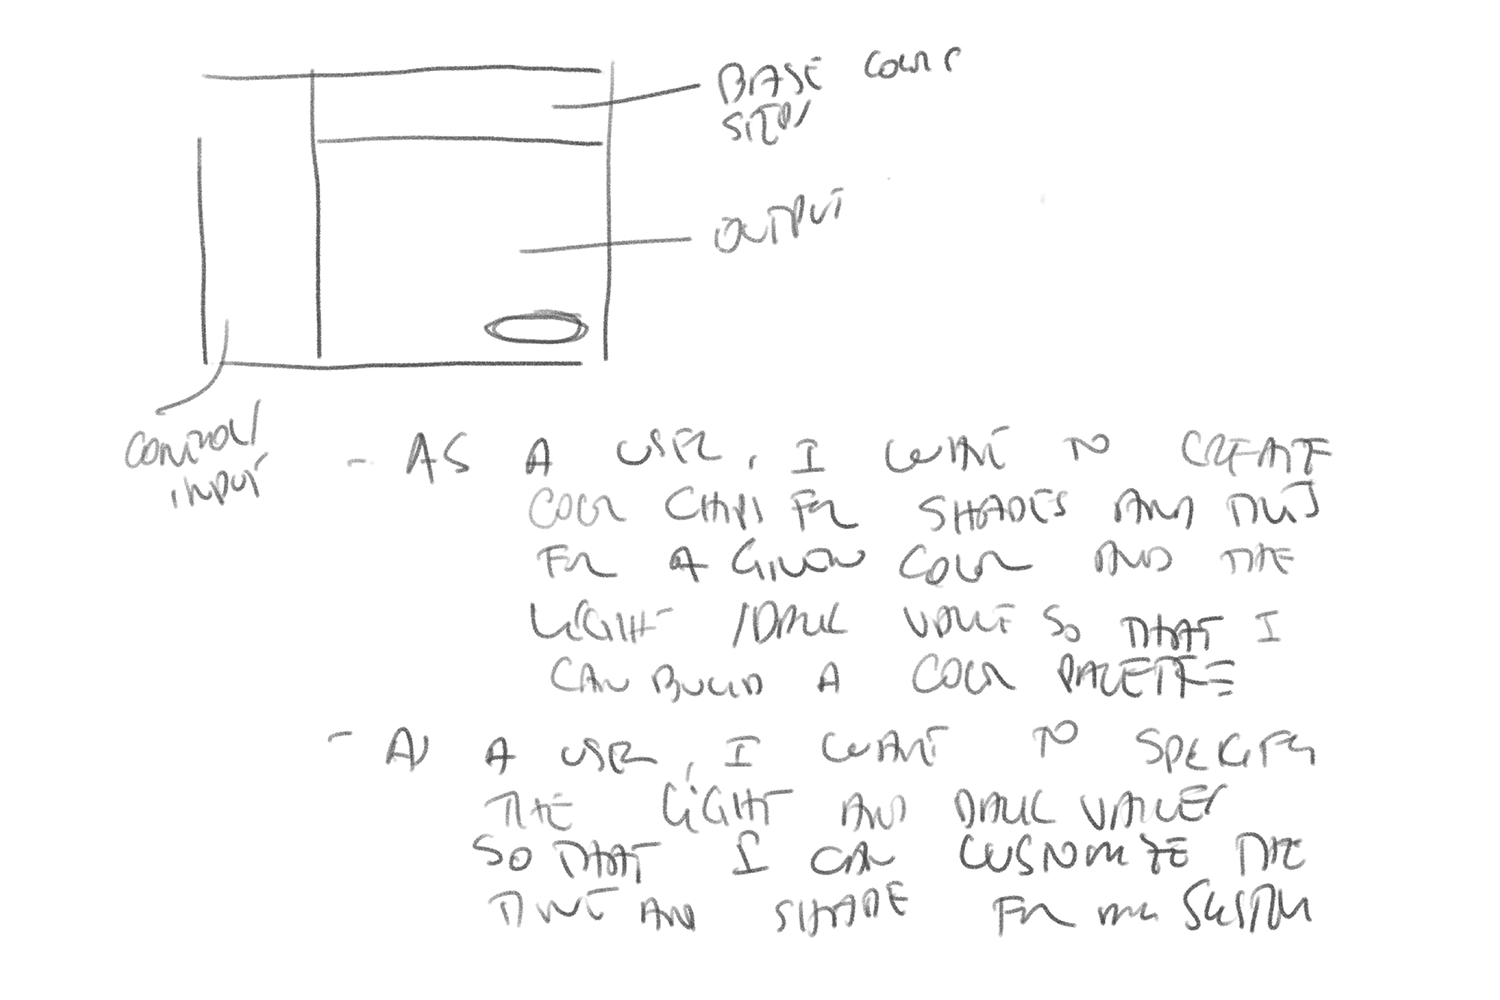 BASE COLOUR
STEPS
OUTPUT
CONTROL/
INPUT
- AS A USER, I WANT TO CREATE
COLOUR CHIPS FOR SHADES AND TINTS
FOR A GIVEN COLOUR AND THE
LIGHT / DARK VALUE SO THAT I
CAN BUILD A COLOUR PALETTE
- AS A USER, I WANT TO SPECIFY
THE LIGHT AND DARK VALUES
SO THAT I CAN CUSTOMIZE THE
TINT AND SHADE FOR MY SYSTEM